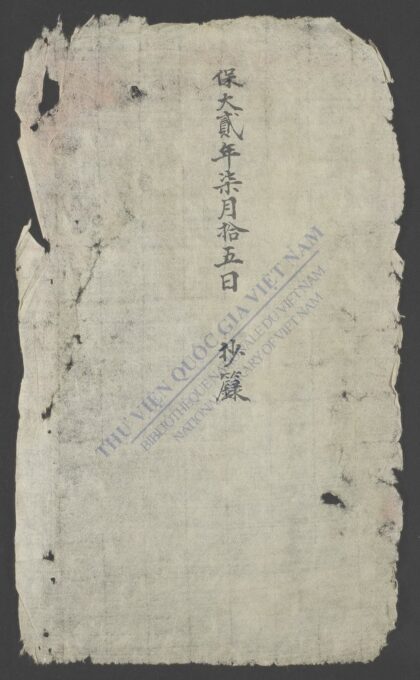 保大貳年柒月拾五日 抄籙
THƯ VIỆN QUỐC GIA VIỆT NAM
BIBLIOTHÈQUE NATIONALE DU VIETNAM
NATIONAL LIBRARY OF VIETNAM